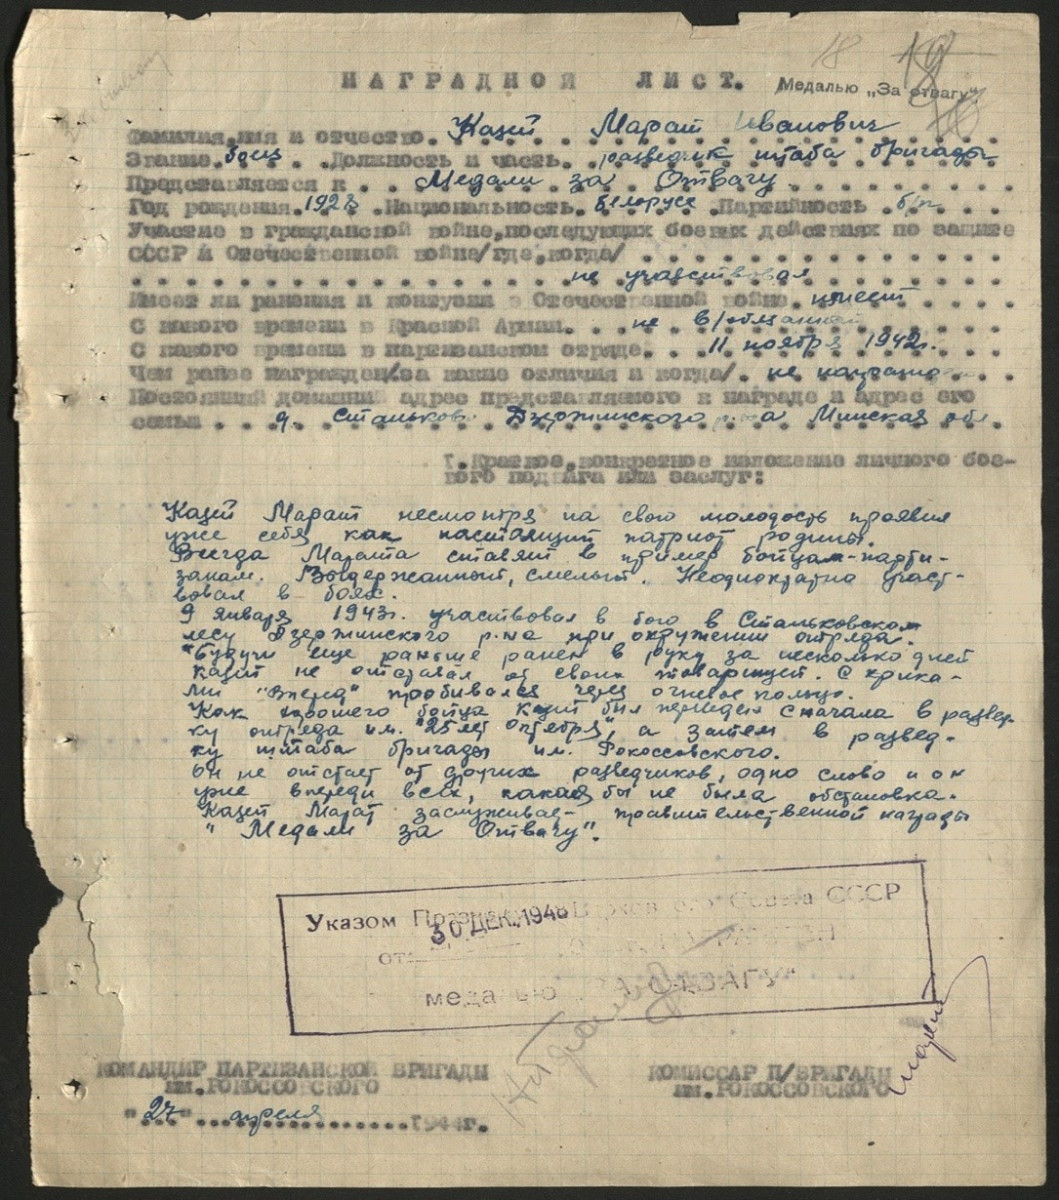 18 19
НАГРАДНОЙ ЛИСТ.
Медалью „За отвагу“
Фамилия, имя и отчество. Казей Марат Иванович
Звание. боец. Должность и часть. разведчик штаба бригады
Представляется к. Медали за Отвагу
Год рождения. 1928. Национальность. белорусс. Партийность. б/п.
Участие в гражданской войне, последующих боевых действиях по защите
СССР и Отечественной войне/где, когда/
не участвовал
Имеет ли ранения и контузии в Отечественной войне. имеет
С какого времени в Красной Армии. не в/обязанный
С какого времени в партизанском отряде. 11 ноября 1942г.
Чем ранее награжден/за какие отличия и когда/. не награжден
Постоянный домашний адрес представляемого к награде и адрес его
семьи д. Станьково Дзержинского р-на Минская обл
I. Краткое, конкретное изложение личного бое-
вого подвига или заслуг:
Казей Марат несмотря на свою молодость проявил
уже себя как настоящий патриот родины.
Всегда Марата ставят в пример бойцам-парти-
занам. Выдержанный, смелый. Неоднократна участ-
вовал в боях.
9 января 1943г. участвовал в бою в Станьковском
лесу Дзержинского р-на при окружении отряда.
Будучи еще раньше ранен в руку за несколько дней
Казей не отставал от своих товарищей. С крика-
ми "Вперед" пробивался через огневое кольцо.
Как хорошего бойца Казей был переведен сначала в развед-
ку отряда им. "25 лет Октября", а затем в развед-
ку штаба бригады им. Рокоссовского.
Он не отстает от других разведчиков, одно слово и он
уже впереди всех, какая бы не была обстановка.
Казей Марат заслуживае- правительственной награды
"Медали за Отвагу".
Указом Президиума Верховного Совета СССР
от 30 ДЕК. 1946
медалью "ЗА ОТВАГУ"
КОМАНДИР ПАРТИЗАНСКОЙ БРИГАДЫ
им. РОКОССОВСКОГО
КОМИССАР П/БРИГАДЫ
им. РОКОССОВСКОГО
"27" апреля 1944г.